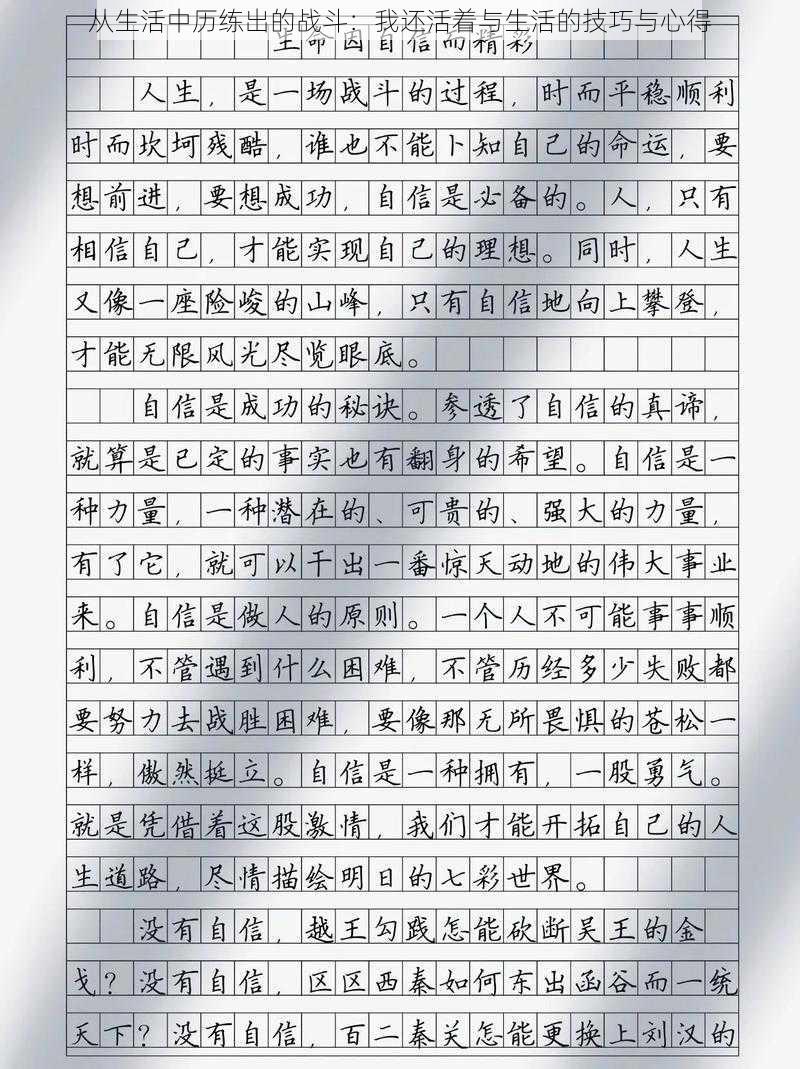 从生活中历练出的战斗：我还活着与生活的技巧与心得
生命因自信而精彩
人生，是一场战斗的过程，时而平稳顺利
时而坎坷残酷，谁也不能卜知自己的命运，要
想前进，要想成功，自信是必备的。人，只有
相信自己，才能实现自己的理想。同时，人生
又像一座险峻的山峰，只有自信地向上攀登，
才能无限风光尽览眼底。
自信是成功的秘诀。参透了自信的真谛，
就算是已定的事实也有翻身的希望。自信是一
种力量，一种潜在的、可贵的、强大的力量，
有了它，就可以干出一番惊天动地的伟大事业
来。自信是做人的原则。一个人不可能事事顺
利，不管遇到什么困难，不管历经多少失败都
要努力去战胜困难，要像那无所畏惧的苍松一
样，傲然挺立。自信是一种拥有，一股勇气。
就是凭借着这股激情，我们才能开拓自己的人
生道路，尽情描绘明日的七彩世界。
没有自信，越王勾践怎能砍断吴王的金
戈？没有自信，区区西秦如何东出函谷而一统
天下？没有自信，百二秦关怎能更换上刘汉的